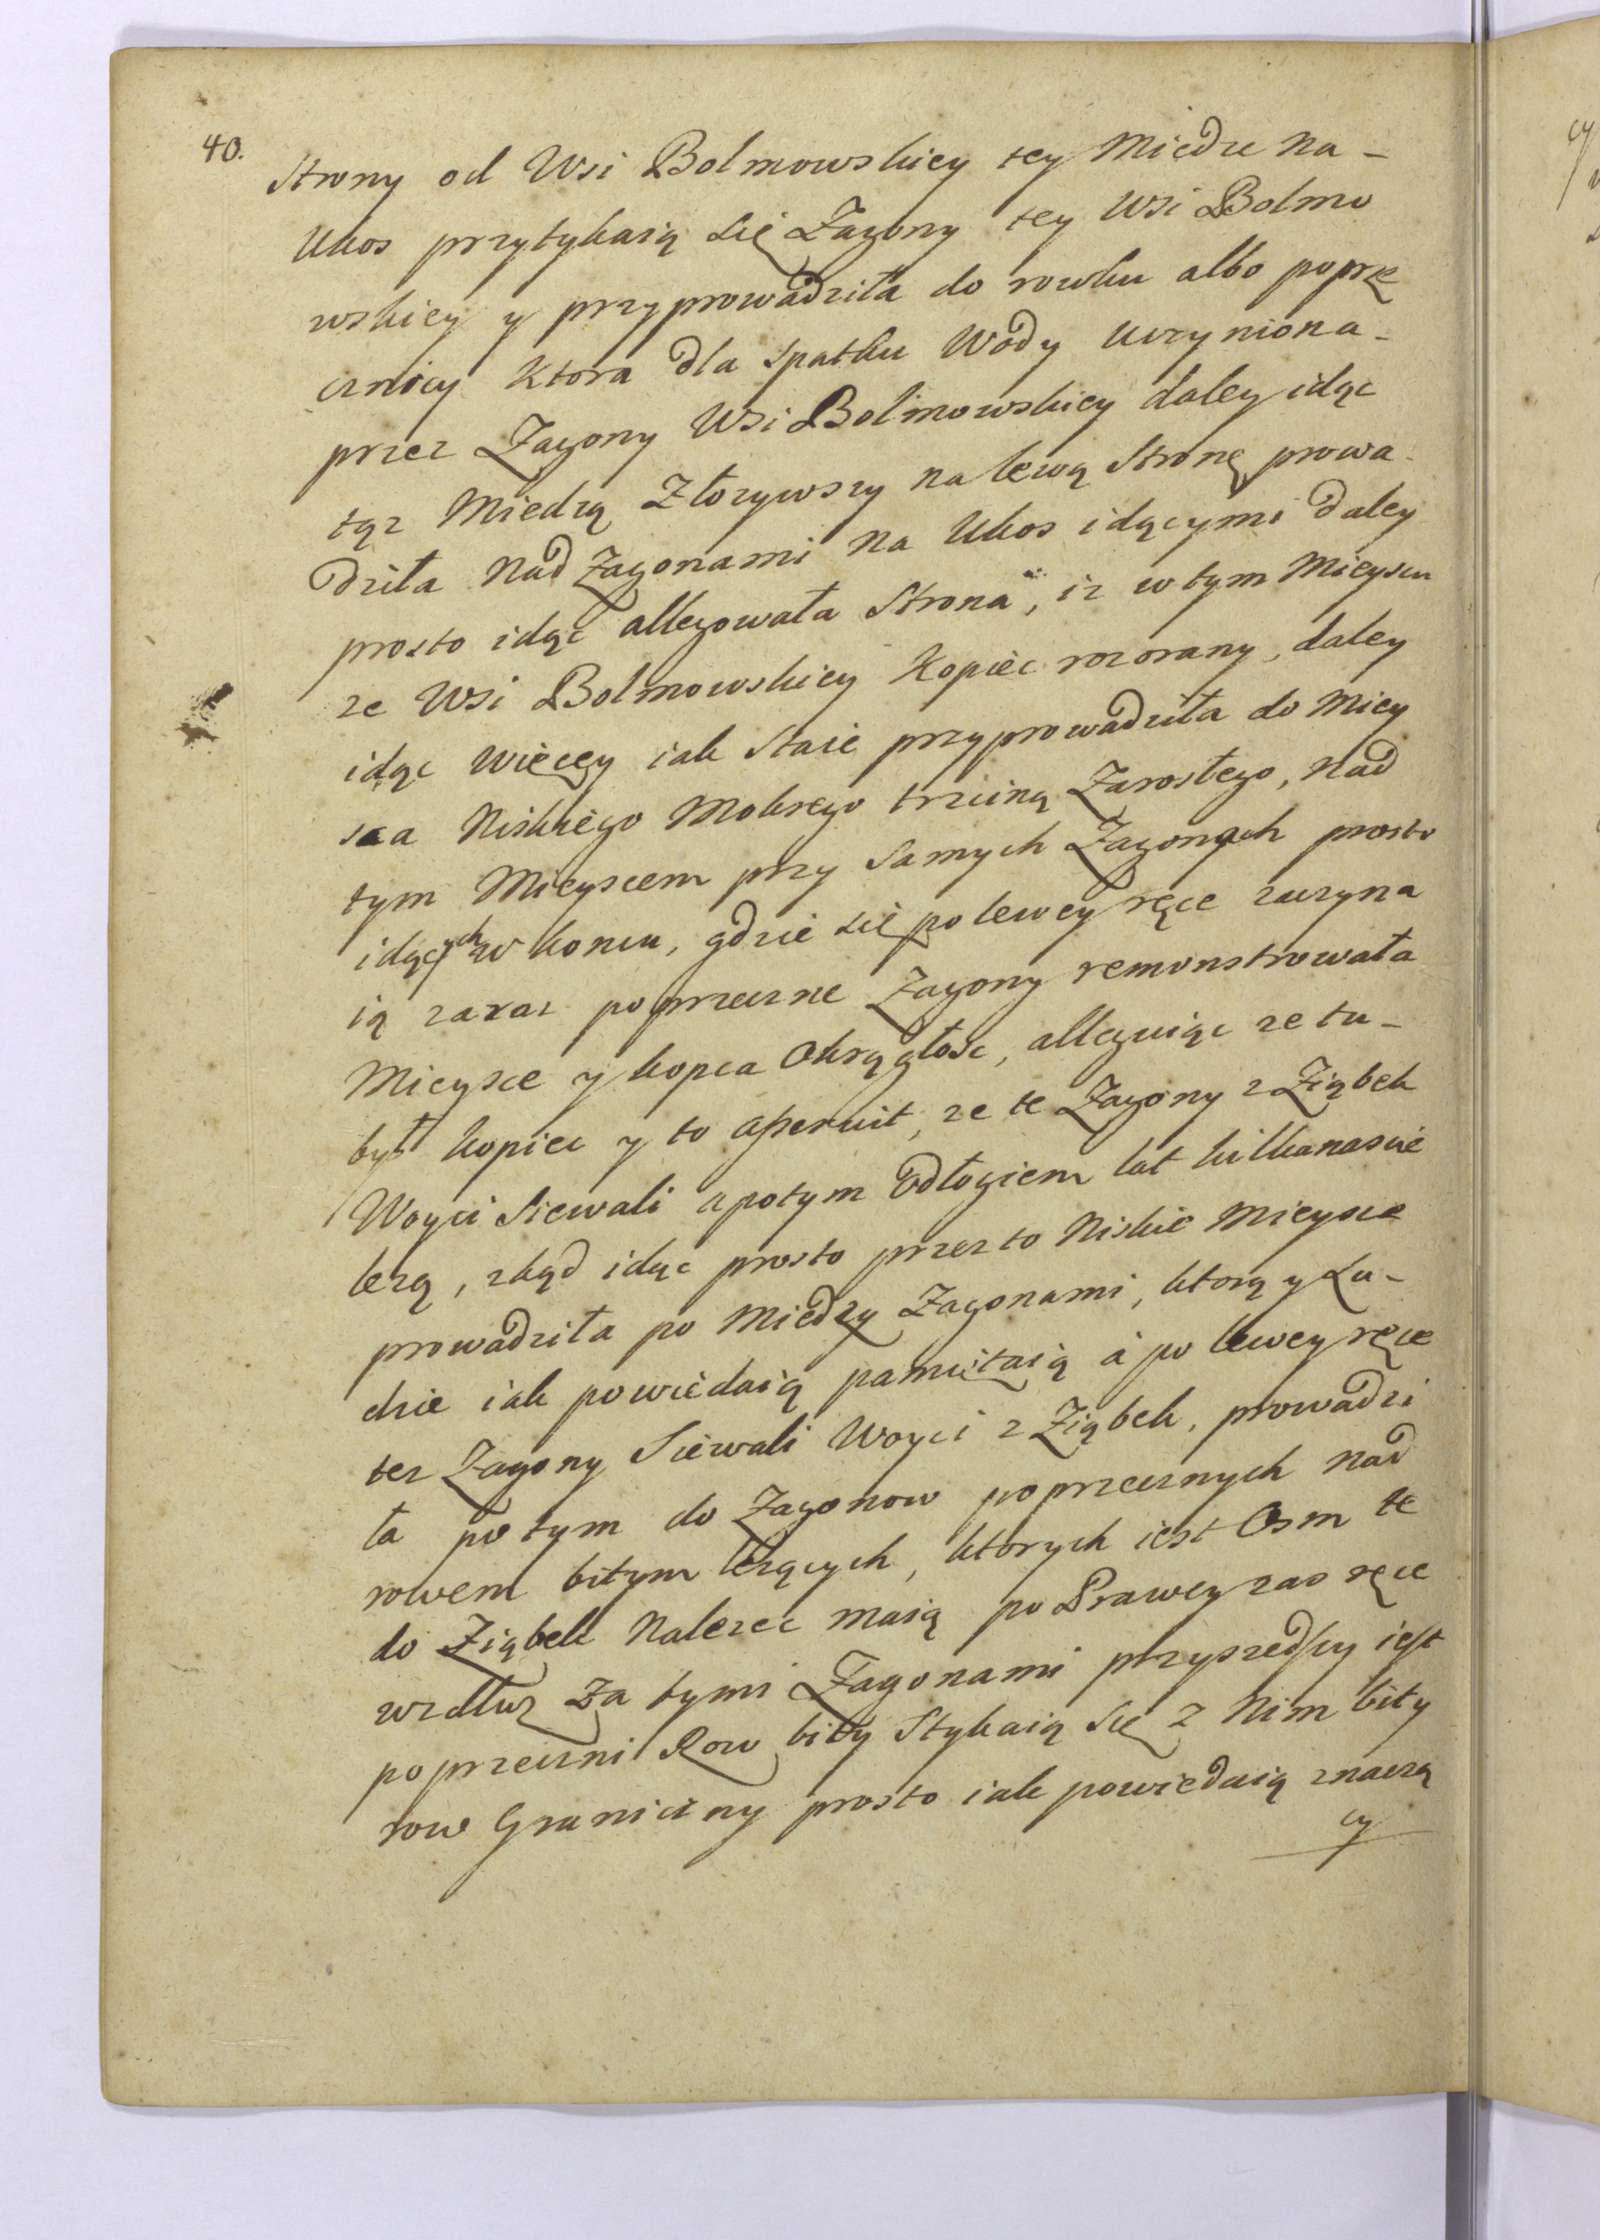 40.
Strony od Wsi Bolmowskiey tey Miedze Na-
Ukos przytykaią się Zagony tey Wsi Bolmo
wskiey y przyprowadziła do rowku albo poprze
cznicy Ktora dla spatku Wody uczyniona-
przez Zagony Wsi Bolmowskiey daley idąc
tąz Miedzą Złozywszy na lewą Stronę prowa-
dziła Nad Zagonami Na Ukos idącymi daley
prosto idąc allegowała Strona, iz w tym Mieyscu
ze Wsi Bolmowskiey Kopiec rozorany, daley
idąc Więcey iak Staie przyprowadziła do Miey
sca Niskiego Mokrego trzciną Zarosłego, Nad
tym Mieyscem przy Samych Zagonach prosto
idących w koncu, gdzie się po lewey ręce zaczyna
ią zaraz poprzeczne Zagony remonstrowała
Mieysce y kopca Okrągłosc, alleguiąc ze tu-
był kopiec y to aperuit, ze te Zagony z Ziąbek
Woyci Siewali apotym Odłogiem lat kilkanascie
lezą, zkąd idąc prosto przez to Niskie Mieysce
prowadziła po Miedzy Zagonami, ktorą y Lu-
dzie iak powiedaią pamiętaią a po lewey ręce
tez Zagony Siewali Woyci z Ziąbek, prowadzi
ła po tym do Zagonow poprzecznych Nad
rowem bitym lezących, ktorych iest Osm te
do Ziąbek Nalezec maią po Prawey zas ręce
wzdłuz Za tymi Zagonami przyszedszy iest
poprzeczni Row bity Stykaią Się z Nim bity
row Graniczny prosto iak powiedaią znaczą
cy